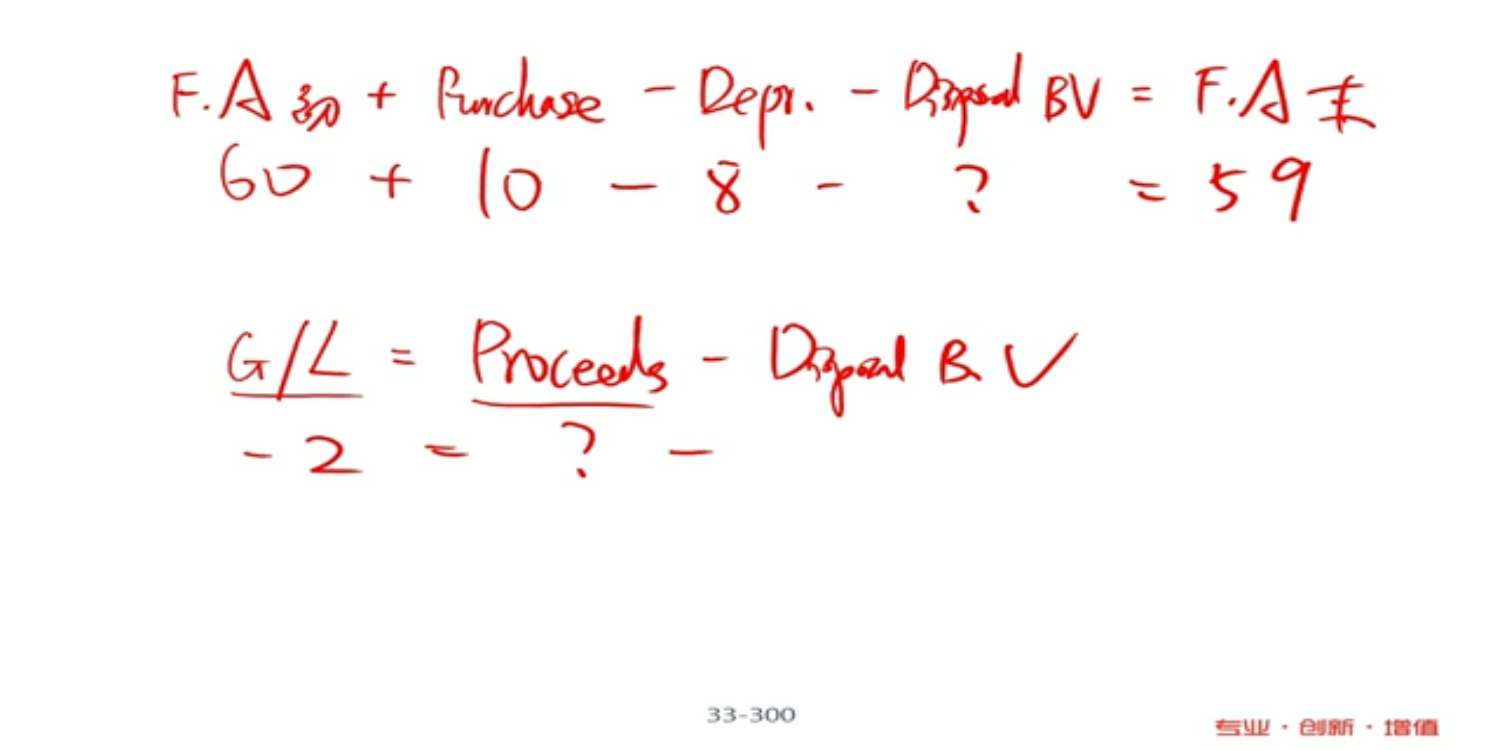 F.A初 + Purchase - Depr. - Disposal BV = F.A末
60 + 10 - 8 - ? = 59
G/L = Proceeds - Disposal BV
-2 = ? -
33-300
专业·创新·增值